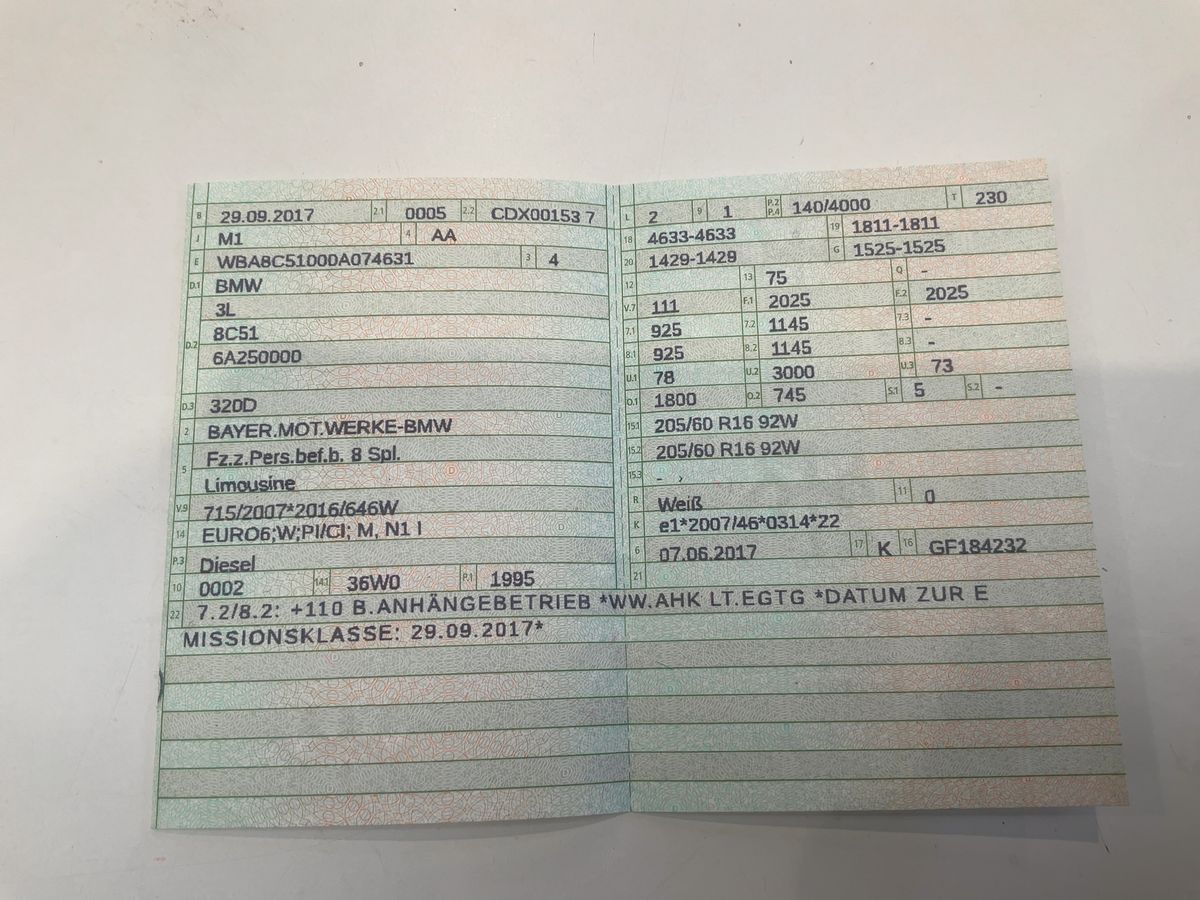 B 29.09.2017 2.1 0005 2.2 CDX00153 7
J M1 4 AA
E WBA8C51000A074631 3 4
D.1 BMW
3L
D.2 8C51
6A250000
D.3 320D
2 BAYER.MOT.WERKE-BMW
5 Fz.z.Pers.bef.b. 8 Spl.
Limousine
V.9 715/2007*2016/646W
14 EURO6;W;PI/CI; M, N1 I
P.3 Diesel
10 0002 14.1 36W0 P.1 1995
L 2 9 1 P.2 P.4 140/4000 T 230
18 4633-4633 19 1811-1811
20 1429-1429 G 1525-1525
12 13 75 Q -
V.7 111 F.1 2025 F.2 2025
7.1 925 7.2 1145 7.3 -
8.1 925 8.2 1145 8.3 -
U.1 78 U.2 3000 U.3 73
O.1 1800 O.2 745 S.1 5 S.2 -
15.1 205/60 R16 92W
15.2 205/60 R16 92W
15.3 - ,
R Weiß 11 0
K e1*2007/46*0314*22
6 07.06.2017 17 K 16 GF184232
21
22 7.2/8.2: +110 B.ANHÄNGEBETRIEB *WW.AHK LT.EGTG *DATUM ZUR E
MISSIONSKLASSE: 29.09.2017*